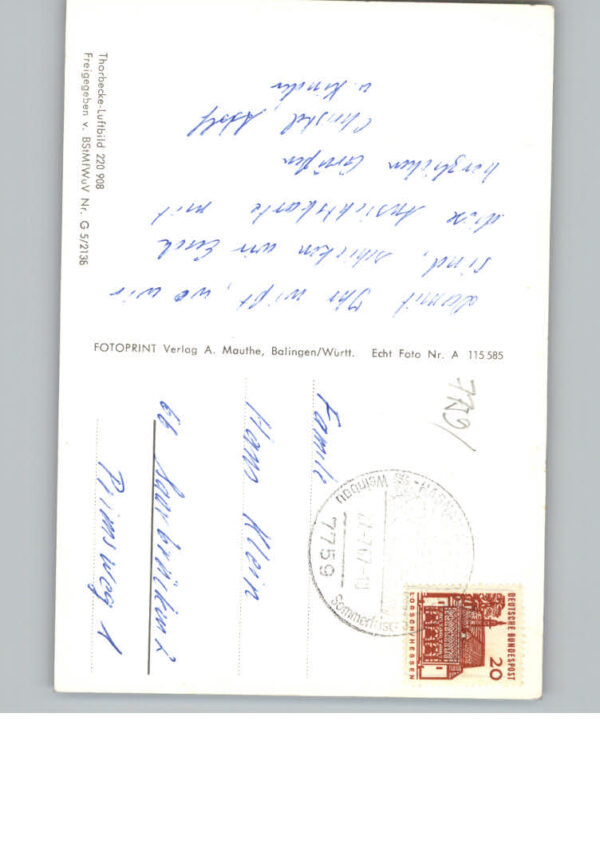 damit Ihr wißt, wo wir
sind, schicken wir Euch
diese Ansichtskarte mit
herzlichen Grüßen
Christel, Adolf
u. Kinder
Thorbecke-Luftbild 220 908
Freigegeben v. BStMfWuV Nr. G 5/2136
FOTOPRINT Verlag A. Mauthe, Balingen/Württ. Echt Foto Nr. A 115585
7759/
Familie
Hans Klein
66 Saarbrücken 2
Pirmsweg 1
Weinbau
7759
Sommerfrisc
DEUTSCHE BUNDESPOST
20
LORSCH/HESSEN